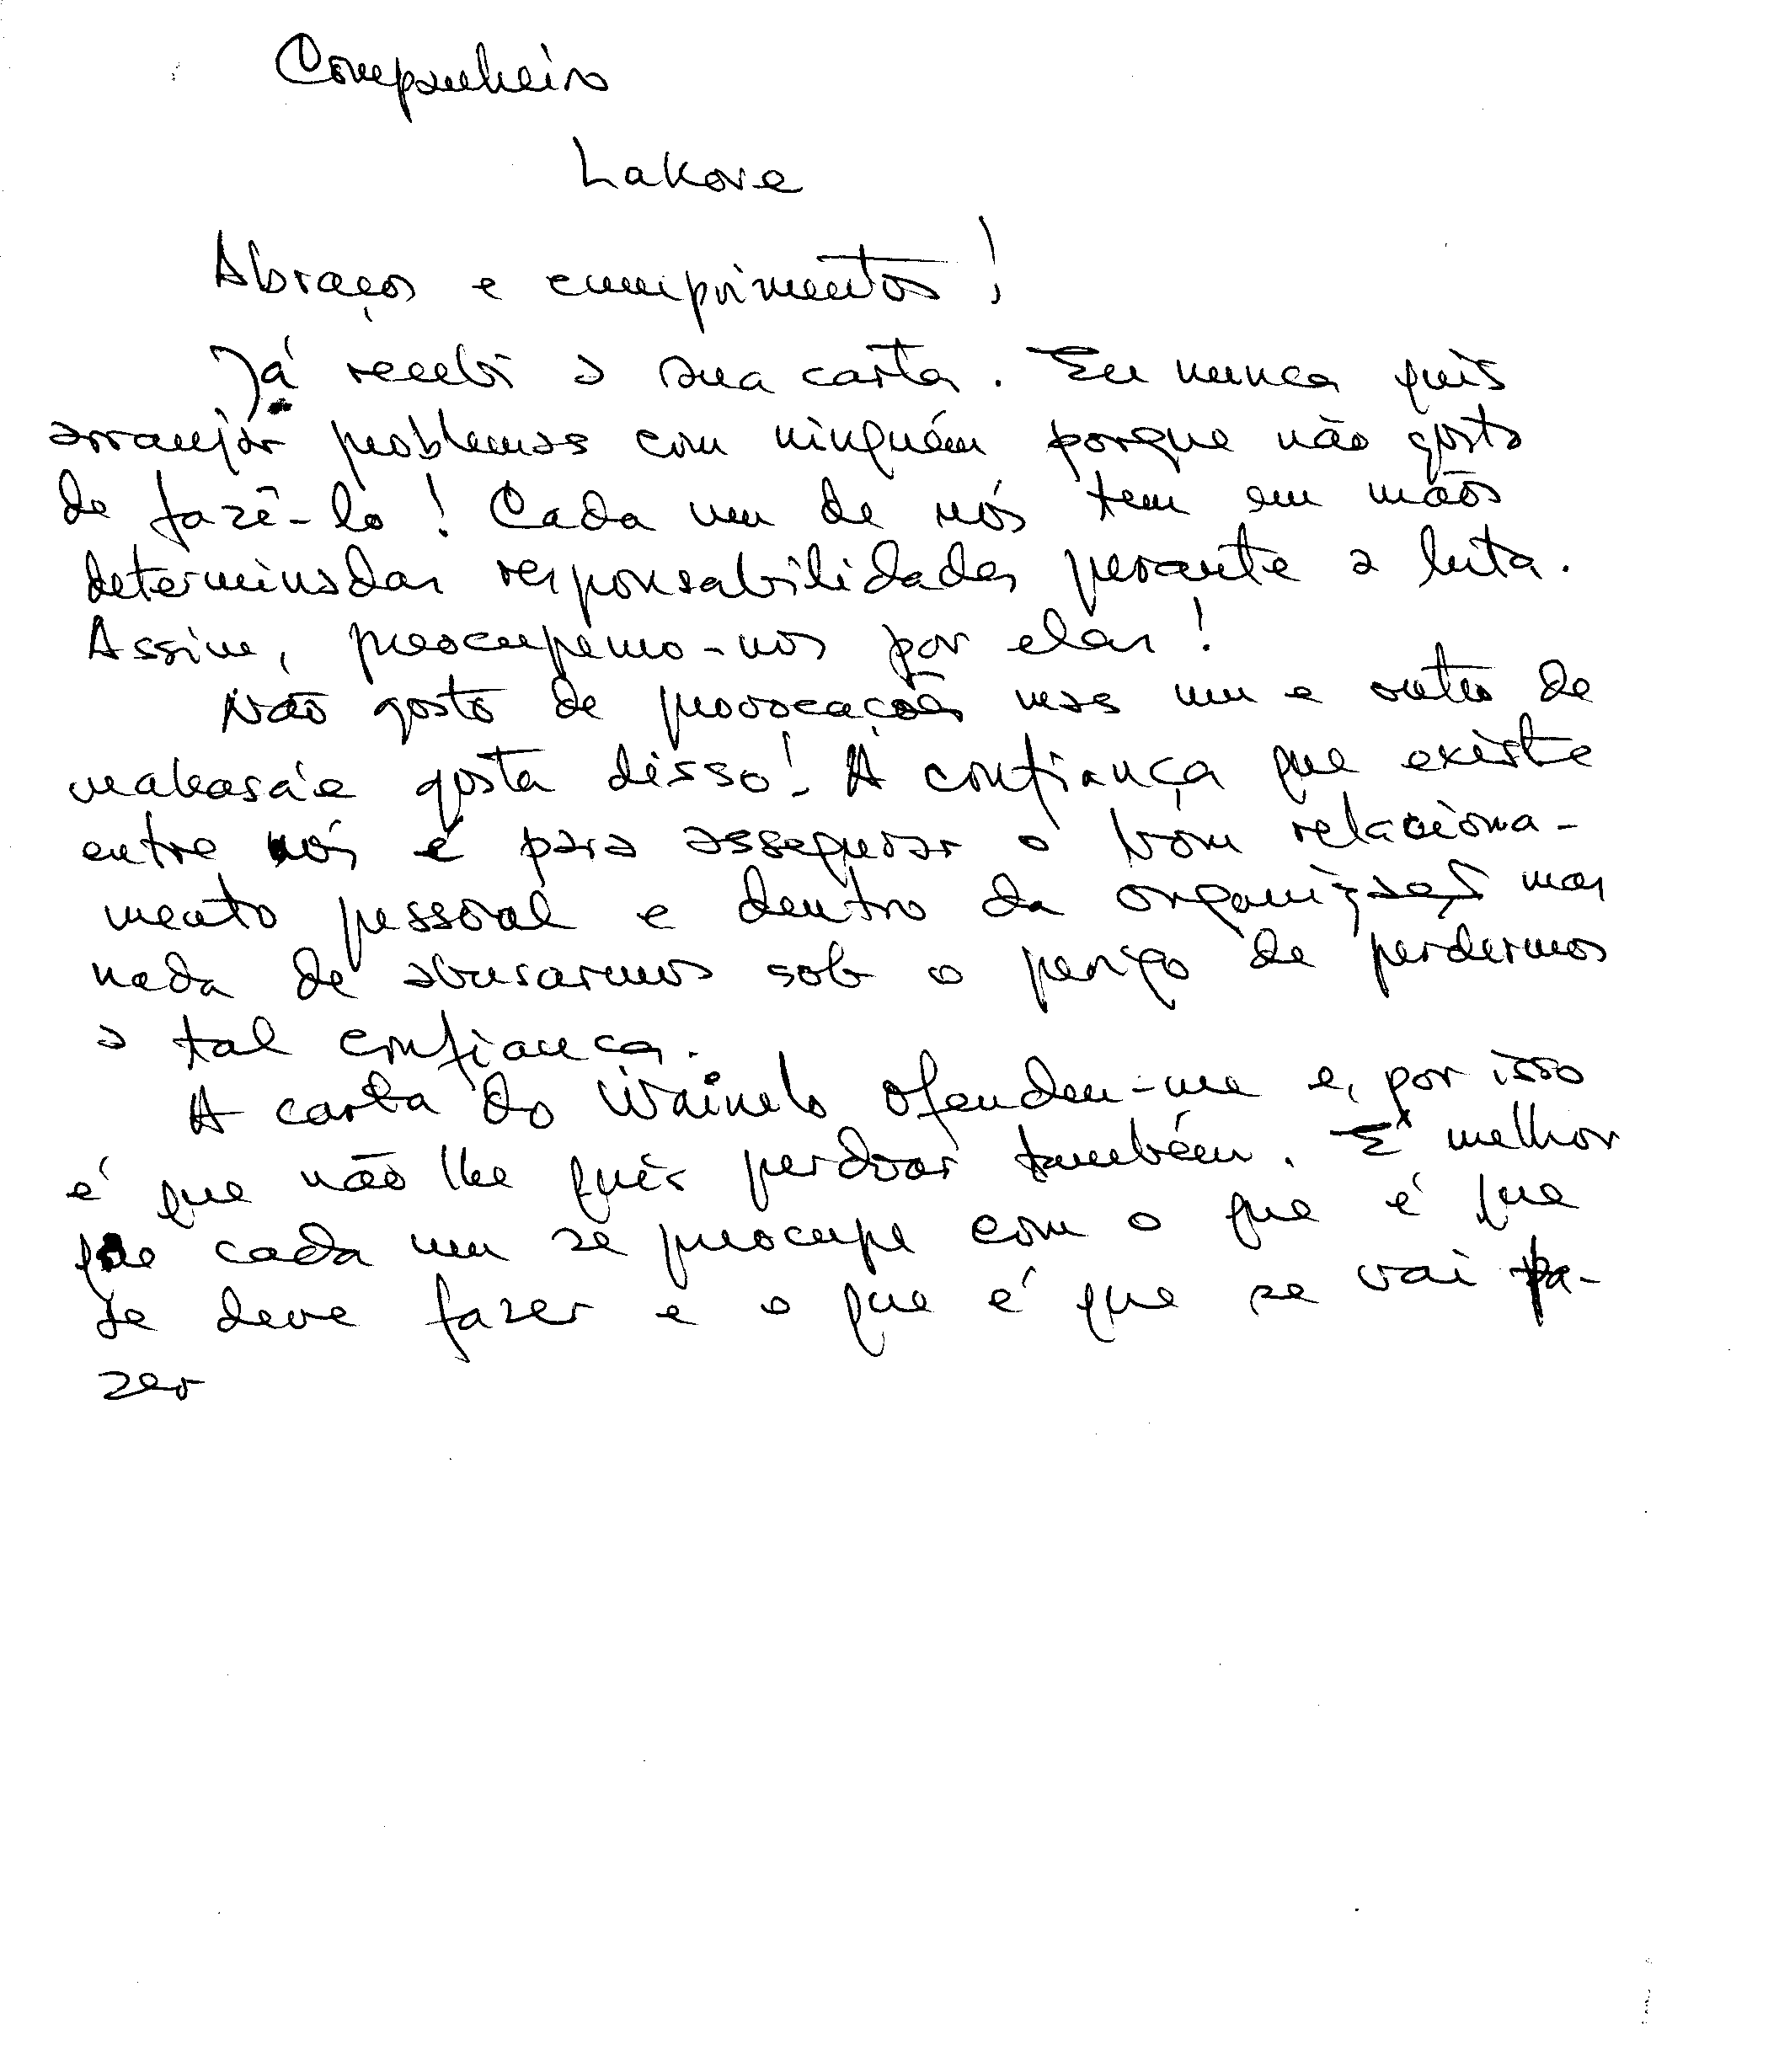 Companheiro
Lakove
Abraços e cumprimentos!
Já recebi a sua carta. Eu nunca quis
arranjar problemas com ninguém porque não gosto
de fazê-lo! Cada um de nós tem em mãos
determinadas responsabilidades perante a luta.
Assim, preocupemo-nos por elas!
Não gosto de provocações mas um e outro de
gosta disso! A confiança que existe
entre nós é para assegurar o bom relaciona-
mento pessoal e dentro da organização mas
nada de abusarmos sob o perigo de perdermos
a tal confiança.
A carta do ofendeu-me e, por isso
é que não lhe quis perdoar também. É melhor
que cada um se preocupe com o que é que
se deve fazer e o que é que se vai fa-
zer